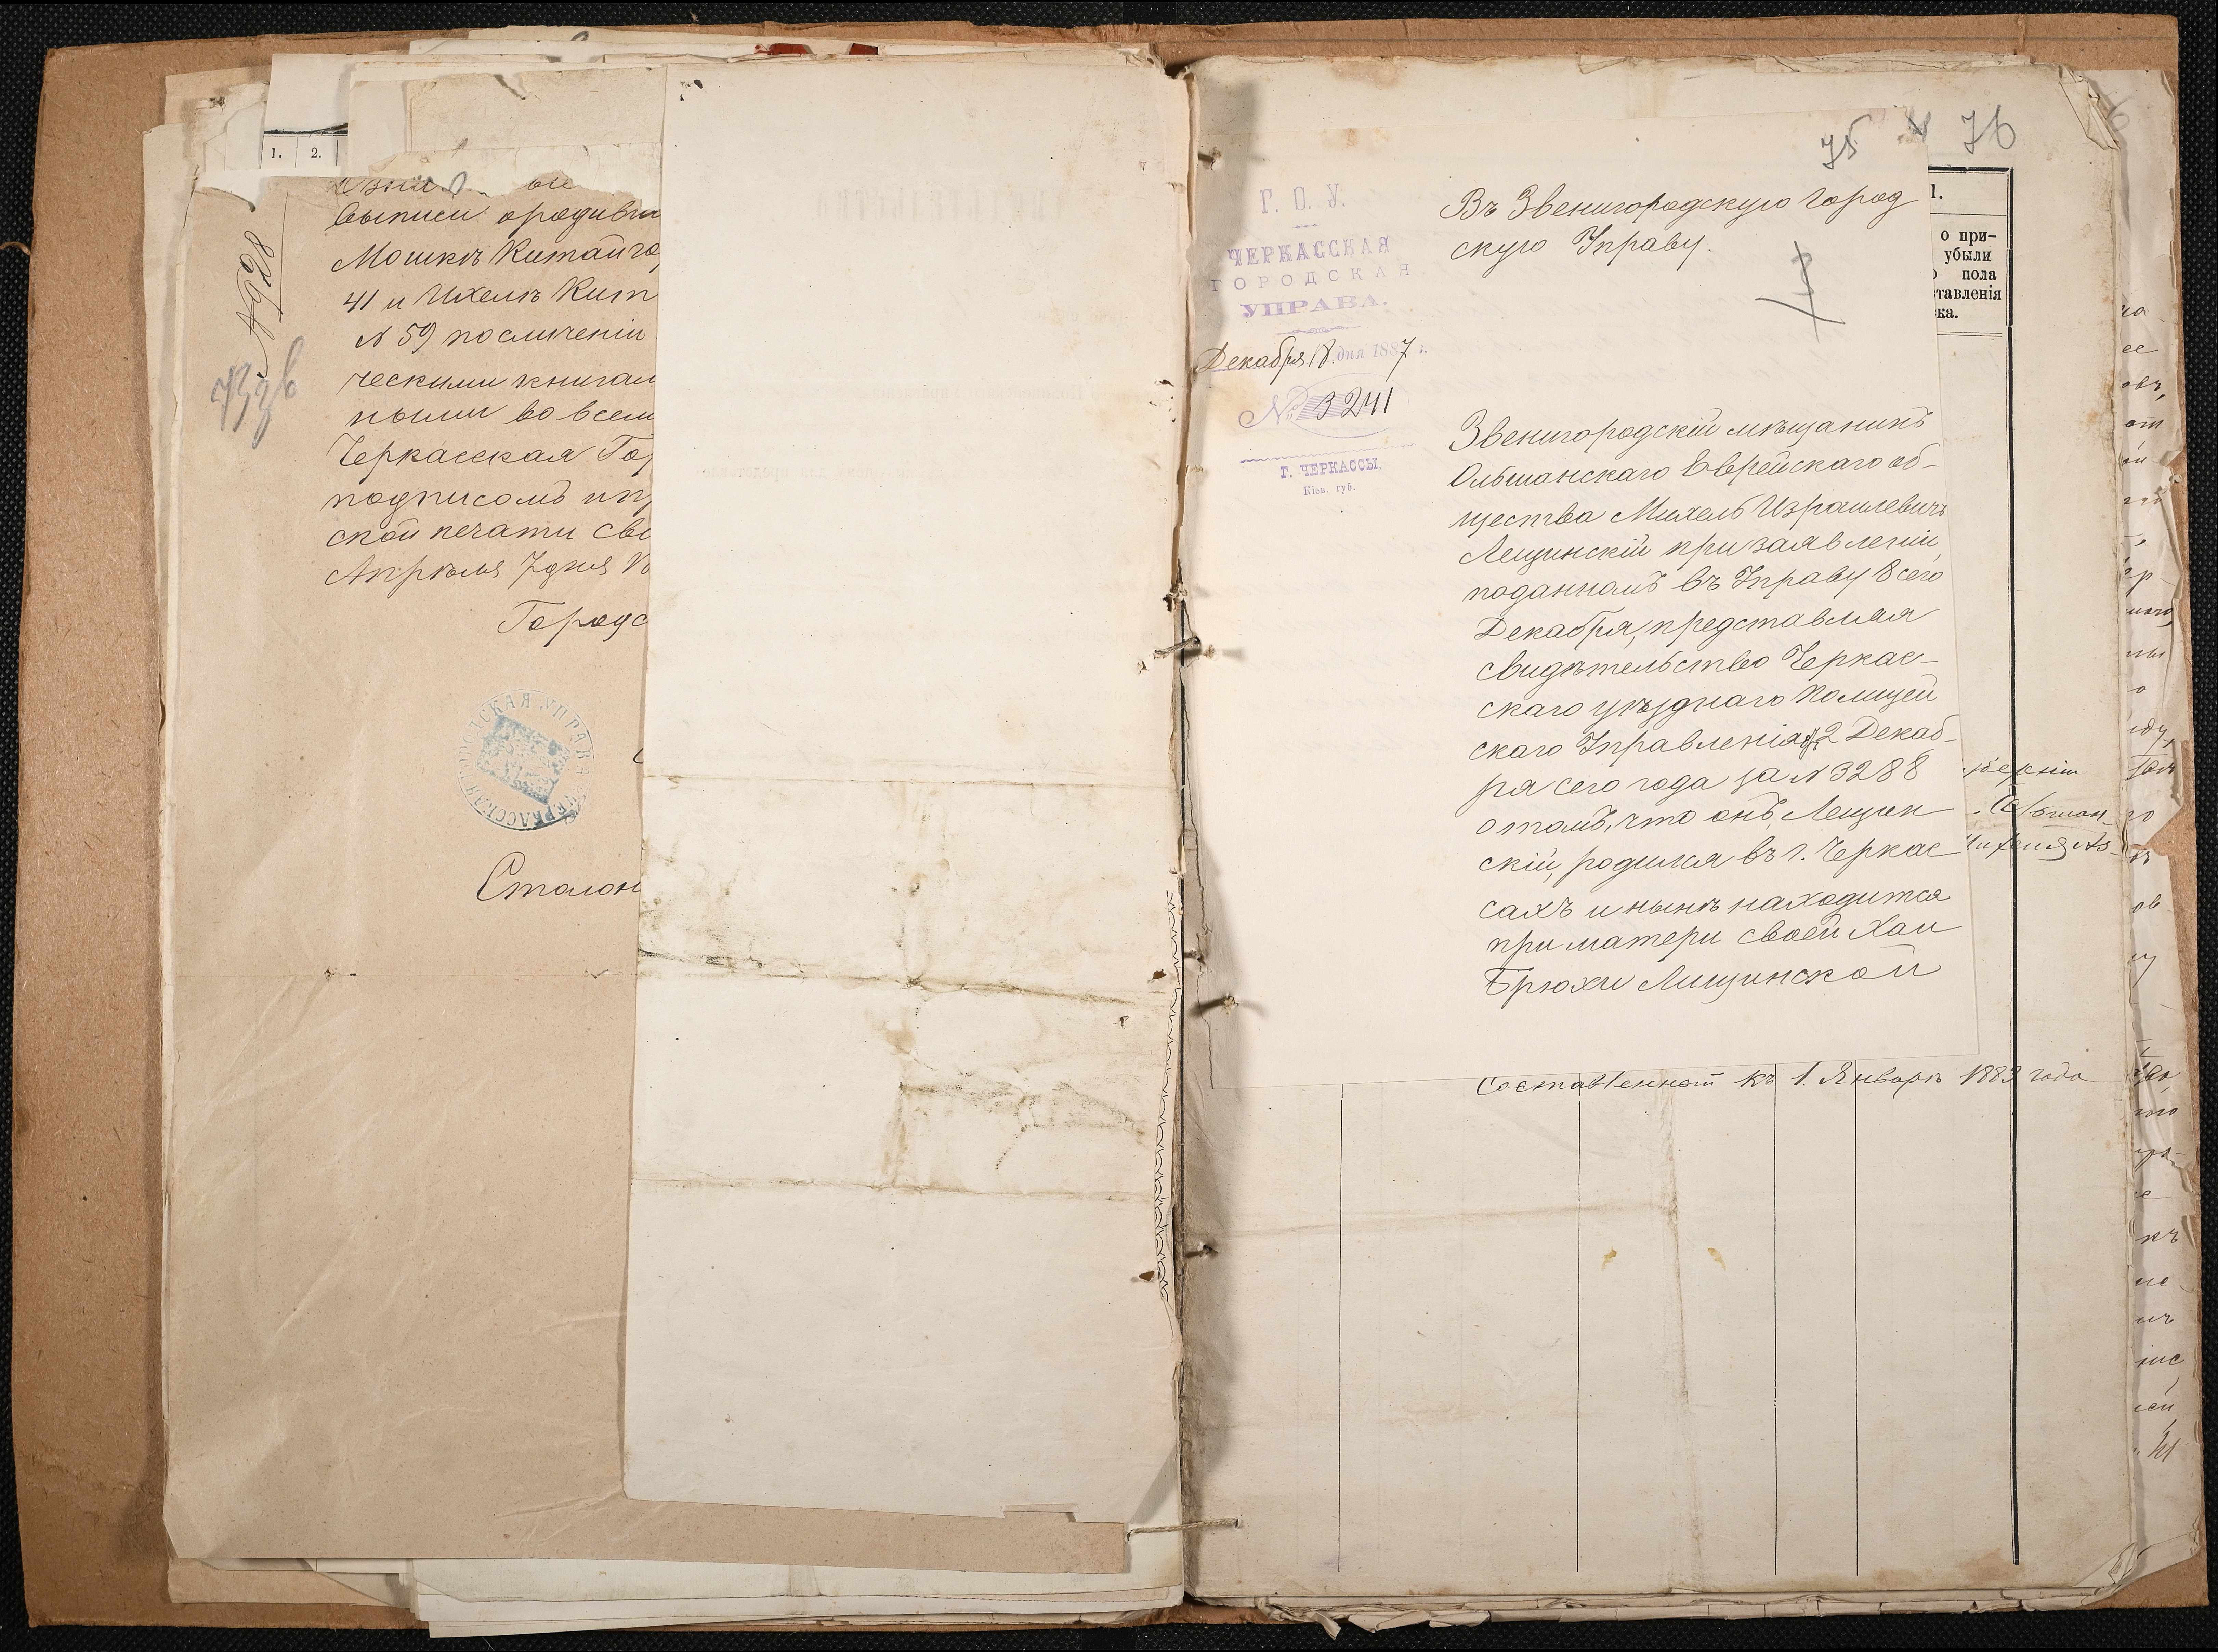 1. 2.
выписи о родивш
Мошкѣ Китайго
41 и Ихелѣ Кит
N 59 по сличеніи
ческими книгам
ными во всем
Черкасская Го
подписомъ и пр
ской печати сви
Апрѣля 7 дня
Городс
ЧЕРКАССКАЯ ГОРОДСКАЯ УПРАВА
Столон
N 928
75 76
Г. О. У.
ЧЕРКАССКАЯ
ГОРОДСКАЯ
УПРАВА.
Декабря 18 дня 1887 г.
№ 3241
Г. ЧЕРКАССЫ,
Кіев. губ.
Въ Звенигородскую Город
скую Управу.
Звенигородскій мѣщанинъ
Ольшанскаго Еврейскаго об-
щества Михель Израилевичъ
Лещинскій при заявленіи,
поданномъ въ Управу 8 сего
Декабря, представляя
свидѣтельство Черкас-
скаго уѣзднаго Полицей
скаго Управленія 2 Декаб-
ря сего года за N 3288
о томъ, что онъ, Лещин
скій, родился въ г. Черкас
сахъ и нынѣ находится
при матери своей Хаи
Брюхи Лищинской
1.
о при-
убыли
пола
тавленія
ка.
Составленной къ 1. Январю 1883 года